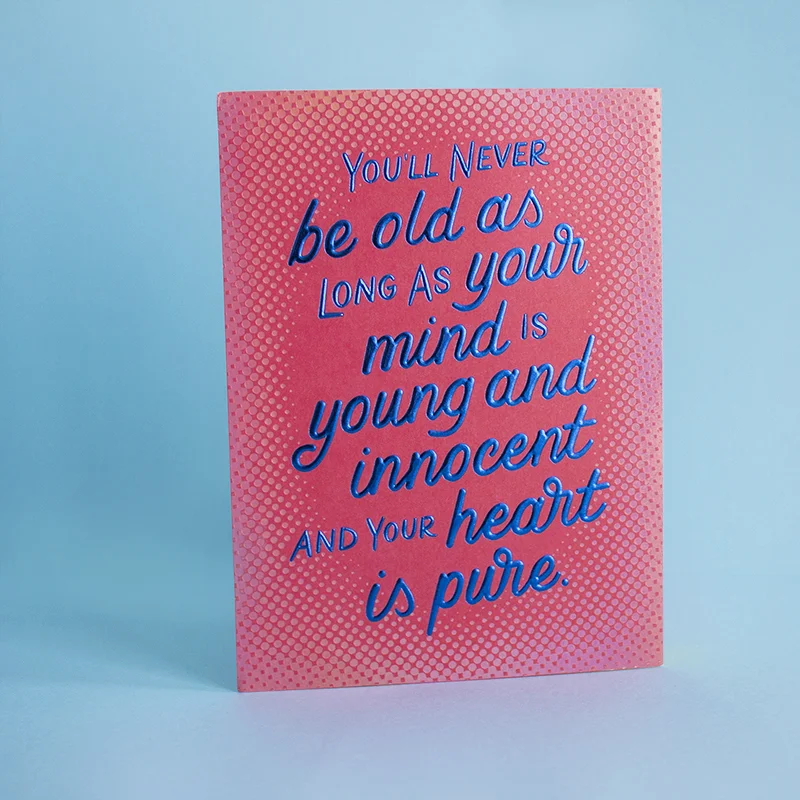 YOU'LL NEVER
be old as
LONG AS your
mind IS
young and
innocent
AND YOUR heart
is pure.